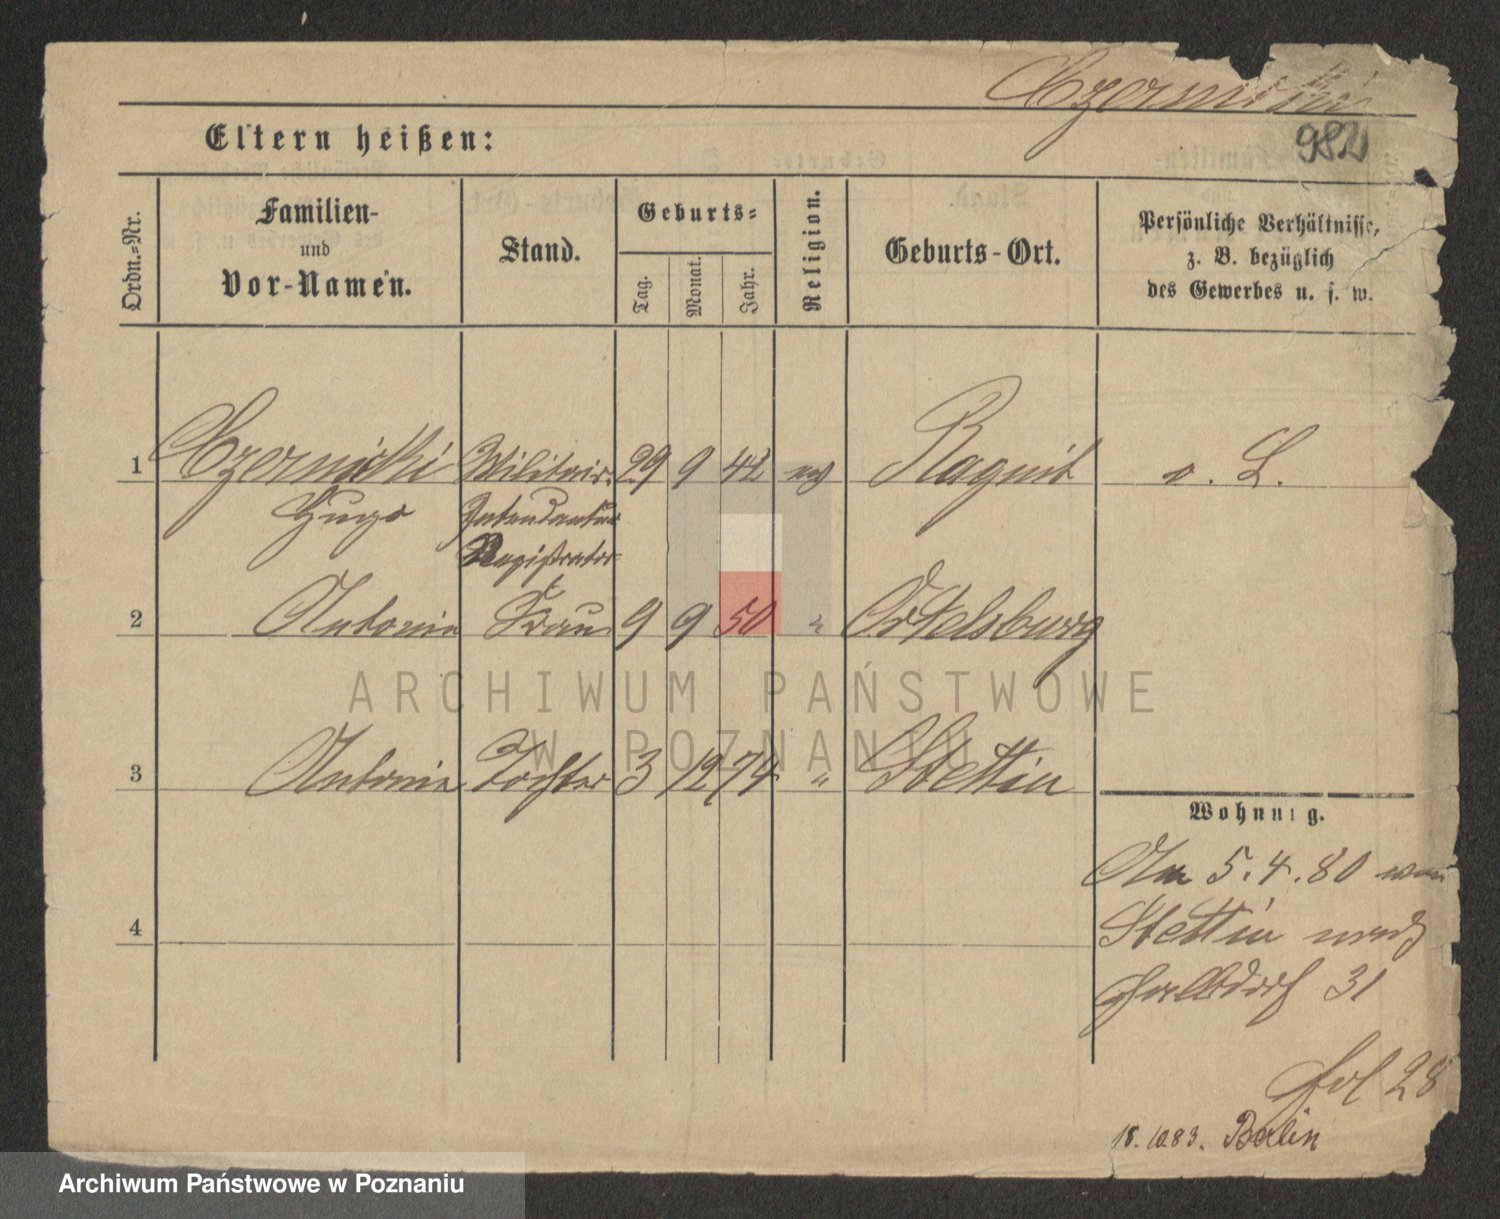 Czernitzki
982
Eltern heißen:
Ordn.-Nr.
Familien-
und
Vor-Namen.
Stand.
Geburts-
Tag.
Monat.
Jahr.
Religion.
Geburts-Ort.
Persönliche Verhältnisse,
z. B. bezüglich
des Gewerbes u. s. w.
1 Czernitzki Militair- 29 9 42 ev Ragnit o. L.
Hugo Intendantur
Registrator
2 Antonie Frau 9 9 50 " Ortelsburg
3 Antonie Tochter 3 12 74 " Stettin
Wohnung.
4
Am 5.4.80 von
Stettin nach
Halbdorf 31
fol 28
18.10.83. Berlin
ARCHIWUM PAŃSTWOWE
W POZNANIU
Archiwum Państwowe w Poznaniu